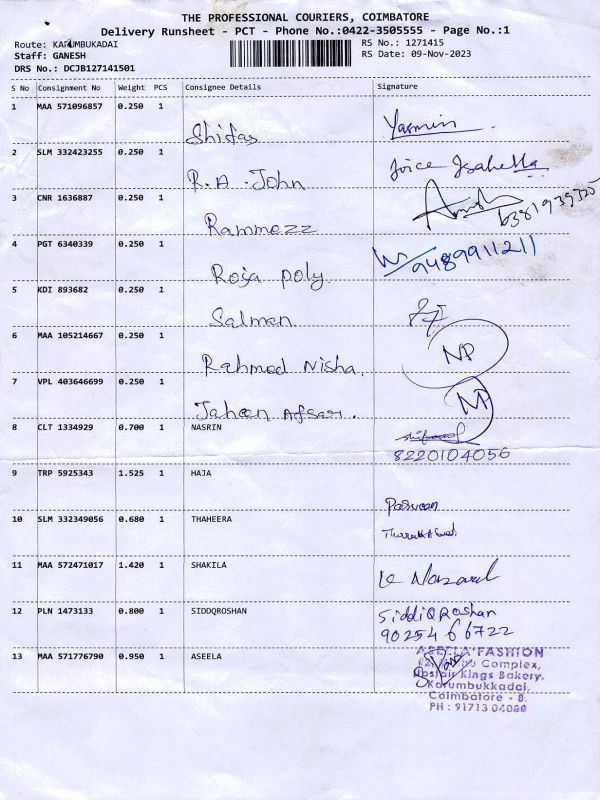 THE PROFESSIONAL COURIERS, COIMBATORE
Delivery Runsheet - PCT - Phone No.:0422-3505555 - Page No.:1
Route: KARUMBUKADAI
Staff: GANESH
DRS No.: DCJB127141501
RS No.: 1271415
RS Date: 09-Nov-2023
S No Consignment No Weight PCS Consignee Details Signature
1 MAA 571096857 0.250 1 Shifas Yasmin
2 SLM 332423255 0.250 1 R.A. John Joice Isabella
3 CNR 1636887 0.250 1 Rammezz 6381939325
4 PGT 6340339 0.250 1 Roja poly 9489911211
5 KDI 893682 0.250 1 Salmen
6 MAA 105214667 0.250 1 Rahmed Nisha. NP
7 VPL 403646699 0.250 1 Jaheen Afsar. NP
8 CLT 1334929 0.700 1 NASRIN
8220104056
9 TRP 5925343 1.525 1 HAJA Parveen
10 SLM 332349056 0.680 1 THAHEERA
11 MAA 572471017 1.420 1 SHAKILA
12 PLN 1473133 0.800 1 SIDDQROSHAN SiddiQRoshan
90254 66722
13 MAA 571776790 0.950 1 ASEELA
ASEELA FASHION
Complex,
Kings Bakery,
Karumbukkadai,
Coimbatore - 8.
PH : 91713 04080